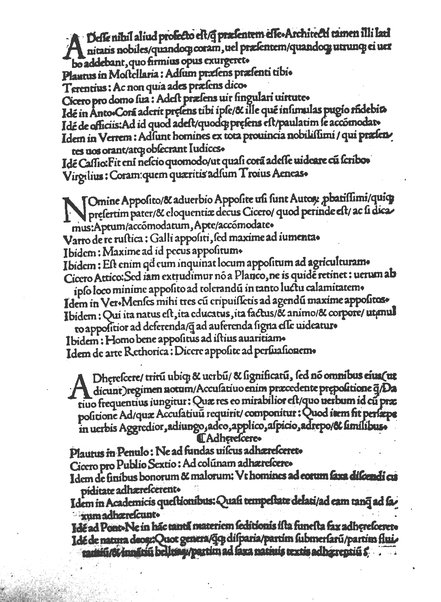 ADesse nihil aliud profecto est/ꝗ̃ præsentem esse. Architecti tamen illi lati
nitatis nobiles/quandoqꝫ coram, uel præsentem/quandoqꝫ utrunqꝫ ei uer
bo addebant, quo firmius opus exurgeret.
Plautus in Mostellaria: Adsum præsens præsenti tibi.
Terentius: Ac non quia ades præsens dico.
Cicero pro domo sua: Adest præsens uir singulari uirtute.
Idẽ in Anto. Corã aderit præsens tibi ipse/& ille quẽ insimulas pugio rñdebit.
Idẽ de officiis: Ad id quod adest/quodqꝫ præsens est/paulatim se accõmodat.
Idem in Verrem: Adsunt homines ex tota prouincia nobilissimi / qui præsen-
tes uos orant/atqꝫ obsecrant Iudices.
Idẽ Cassio: Fit eni nescio quomodo/ut quasi corã adesse uideare cũ scribo.
Virgilius: Coram: quem quæritis adsum Troius Aeneas.
NOmine Apposito/& aduerbio Apposite usi sunt Autoꝝ ꝓbatissimi/quiqꝫ
præsertim pater/& eloquentiæ decus Cicero/ quod perinde est/ ac si dica
mus: Aptum/accõmodatum, Apte/accõmodate.
Varro de re rustica: Galli appositi, sed maxime ad iumenta.
Ibidem: Maxime ad id pecus appositum.
Ibidem: Est enim qd cum inquinat locum appositum ad agriculturam.
Cicero Attico: Sed iam extrudimur nõ a Planco, ne is quidẽ retinet: uerum ab
ipso loco minime apposito ad tolerandũ in tanto luctu calamitatem.
Idem in Ver. Menses mihi tres cũ eripuissetis ad agendũ maxime appositos.
Ibidem: Qui ita natus est, ita educatus, ita factus/& animo/& corpore/ ut multo
to appositior ad deferenda/ꝗ̃ ad auferenda signa esse uideatur.
Ibidem: Homo bene appositus ad istius auaritiam.
Idem de arte Rethorica: Dicere apposite ad persuasionem.
ADhærescere/ tritũ ubiqꝫ & uerbũ/ & significatũ, sed nõ omnibus eius (ut
dicunt) regimen notum/Accusatiuo enim præcedente prepositione ꝗ̃/Da
tiuo frequentius iungitur: Quæ res eo mirabilior est/quo uerbum id cũ præ
positione Ad/quæ Accusatiuũ requirit/ componitur: Quod item fit persæpe
in uerbis Aggredior, adiungo, adeo, applico, aspicio, adrepo/& similibus.
¶ Adhærescere.
Plautus in Penulo: Ne ad fundas uiscus adhæresceret.
Cicero pro Publio Sextio: Ad colũnam adhæresceret.
Idem de finibus bonorum & malorum: Vt homines ad eorum saxa discendi cu
piditate adhærescerent.
Idem in Academicis questionibus: Quasi tempestate delati/ad eam tanꝗ̃ ad sa-
xum adhærescunt.
Idẽ ad Pont. Ne in hãc tantã materiem seditionis ista funesta fax adhæresceret.
Idẽ de natura deoꝝ: Quot genera/qꝫ disparia/partim submersarũ/partim flui-
tantiũ/& innãtiũ belluaꝝ/partim ad saxa natiuis textis adhærentiũ?